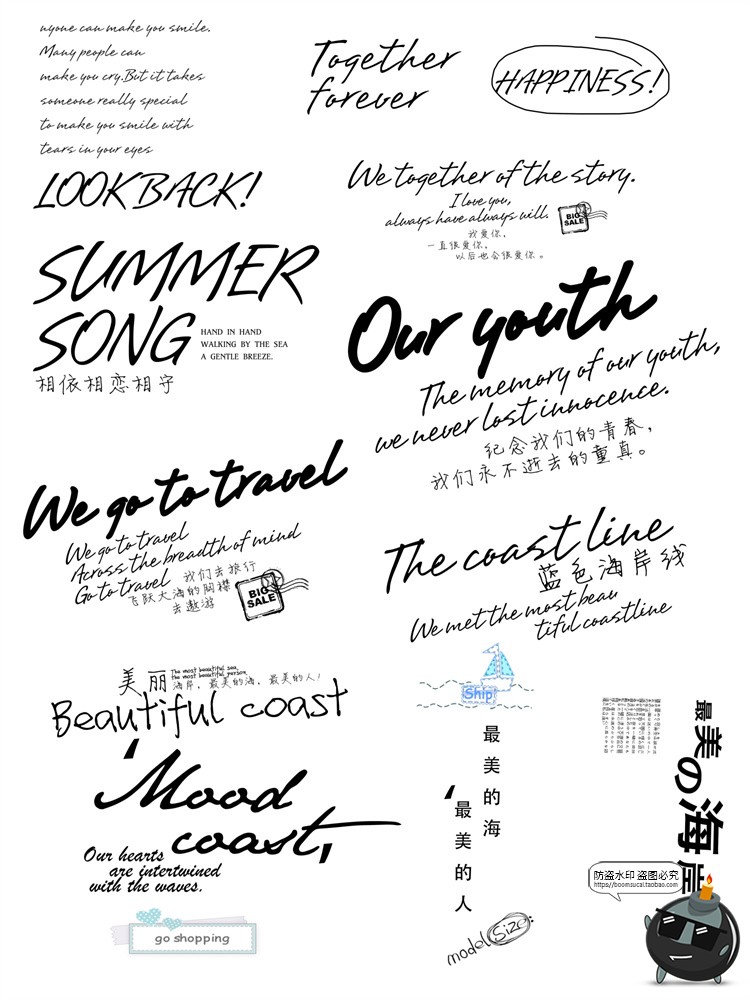 nyone can make you smile.
Many people can
make you cry.But it takes
someone really special
to make you smile with
tears in your eyes
LOOK BACK!
Together
forever
HAPPINESS!
We together of the story.
I love you,
always have always will.
BIG
SALE
我爱你，
一直很爱你，
以后也会很爱你。
SUMMER
SONG
HAND IN HAND
WALKING BY THE SEA
A GENTLE BREEZE.
相依相恋相守
Our youth
The memory of our youth,
we never lost innocence.
纪念我们的青春，
我们永不逝去的童真。
We go to travel
We go to travel
Across the breadth of mind
Go to travel
我们去旅行
飞跃大海的胸襟
去遨游
BIG
SALE
The coast line
蓝色海岸线
We met the most beau
tiful coastline
美丽
The most beautiful sea,
the most beautiful person.
海岸，最美的海，最美的人！
Beautiful coast
'Mood
coast,
Our hearts
are intertwined
with the waves.
go shopping
Ship
最美的海
'最美的人
model Size:
最美の海岸
防盗水印 盗图必究
https://boomsucai.taobao.com